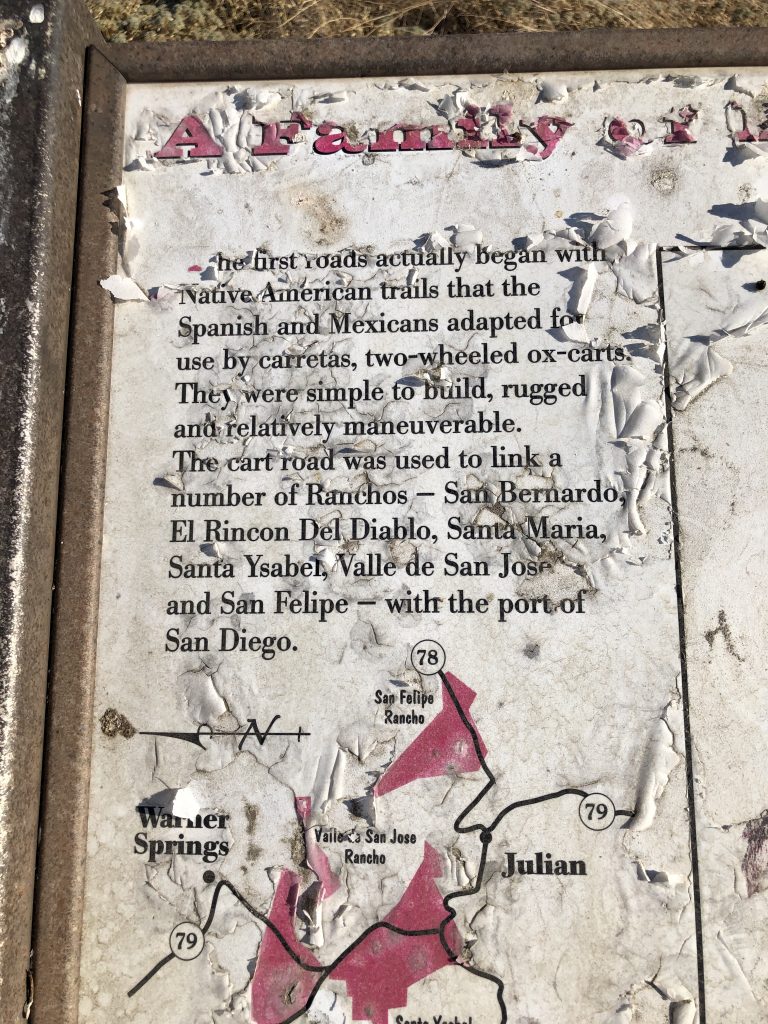 A Family of
he first roads actually began with
Native American trails that the
Spanish and Mexicans adapted for
use by carretas, two-wheeled ox-carts.
They were simple to build, rugged
and relatively maneuverable.
The cart road was used to link a
number of Ranchos – San Bernardo,
El Rincon Del Diablo, Santa Maria,
Santa Ysabel, Valle de San Jose
and San Felipe – with the port of
San Diego.
78
San Felipe
Rancho
N
79
Warner
Springs
Valle de San Jose
Rancho
Julian
79
Santa Ysabel